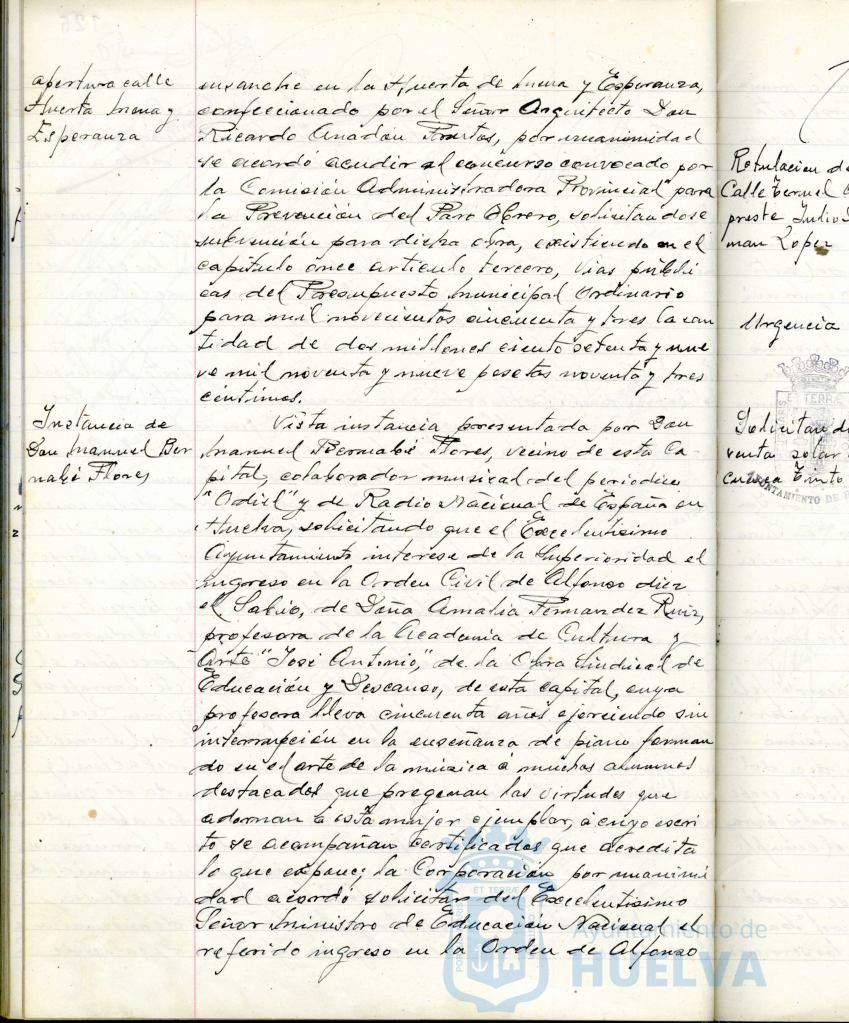 apertura calle
Huerta Mena y
Esperanza
ensanche en la Huerta de Mena y Esperanza,
confeccionado por el Señor Arquitecto Don
Ricardo Anadón Frutos, por unanimidad
se acordó acudir al concurso convocado por
la Comisión Administradora Provincial" para
la Prevención del Paro Obrero, solicitandose
subvención para dicha obra, existiendo en el
capítulo once articulo tercero, Vias públi
cas del Presupuesto Municipal Ordinario
para mil novecientos cincuenta y tres la can
tidad de dos millones ciento setenta y nue
ve mil noventa y nueve pesetas noventa y tres
céntimos.
Instancia de
Don Manuel Ber
nabé Flores
Vista instancia presentada por Don
Manuel Bernabé Flores, vecino de esta Ca-
pital, colaborador musical del periodico
"Odiel" y de Radio Nacional de España en
Huelva, solicitando que el Excelentisimo
Ayuntamiento interese de la Superioridad el
ingreso en la Orden Civil de Alfonso diez
el Sabio, de Doña Amalia Fernandez Ruiz,
profesora de la Academia de Cultura y
Arte "José Antonio," de la Obra Sindical de
Educación y Descanso, de esta capital, cuya
profesora lleva cincuenta años ejerciendo sin
interrupción en la enseñanza de piano forman
do en el arte de la música a muchos alumnos
destacados que pregonan las virtudes que
adornan a esta mujer ejemplar, a cuyo escri
to se acompañan certificados que acredita
lo que expone; la Corporación por unanimi
dad acordó solicitar del Excelentisimo
Señor Ministro de Educación Nacional el
referido ingreso en la Orden de Alfonso
Rotulacion de
Calle Teruel
preste Julio
man Lopez
Urgencia
Solicitan de
venta solar
cuenca Tinto
AYUNTAMIENTO DE
Ayuntamiento de
HUELVA